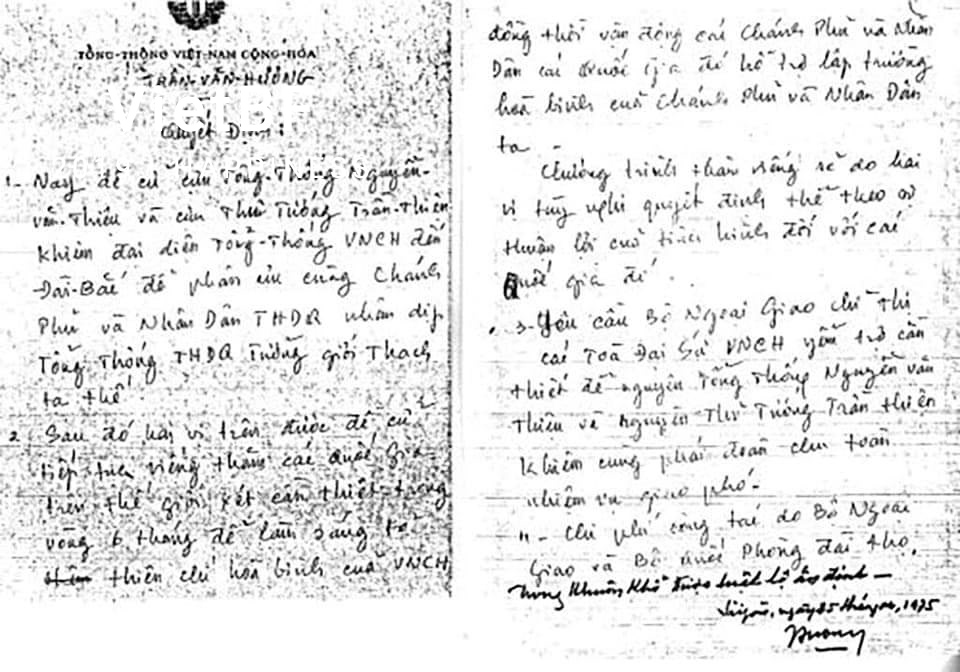 TỔNG-THỐNG VIỆT-NAM CỘNG-HÒA
TRẦN-VĂN-HƯƠNG
VietBF
Quyết Định:
1- Nay đề cử cựu Tổng-Thống Nguyễn-
văn-Thiệu và cựu Thủ Tướng Trần-Thiện
Khiêm đại diện Tổng-Thống VNCH đến
Đài-Bắc để phân ưu cùng Chánh
Phủ và Nhân Dân THDQ nhân dịp
Tổng Thống THDQ Tưởng giới Thạch
ta thế.
2 Sau đó hai vị trên được đề cử
tiếp tục viếng thăm các Quốc Gia
trên thế giới xét cần thiết trong
vòng 6 tháng để làm sáng tỏ
thiện chí hoà bình của VNCH
đồng thời vận động các Chánh Phủ và Nhân
Dân các Quốc Gia đó hỗ trợ lập trường
hoà bình của Chánh Phủ và Nhân Dân
ta -
Chương trình thăm viếng sẽ do hai
vị tùy nghi quyết định thể theo sự
thuận lợi của tình hình đối với các
Quốc gia đó.
3- Yêu cầu Bộ Ngoại Giao chỉ thị
các Toà Đại Sứ VNCH yểm trợ cần
thiết để nguyên Tổng Thống Nguyễn văn
Thiệu và nguyên Thủ Tướng Trần thiện
Khiêm cùng phái đoàn chu toàn
nhiệm vụ giao phó-
4- Chi phí công tác do Bộ Ngoại
Giao và Bộ Quốc Phòng đài thọ,
trong khuôn khổ được luật lệ ấn định —
Saigon, ngày 25 tháng 04, 1975
Huong